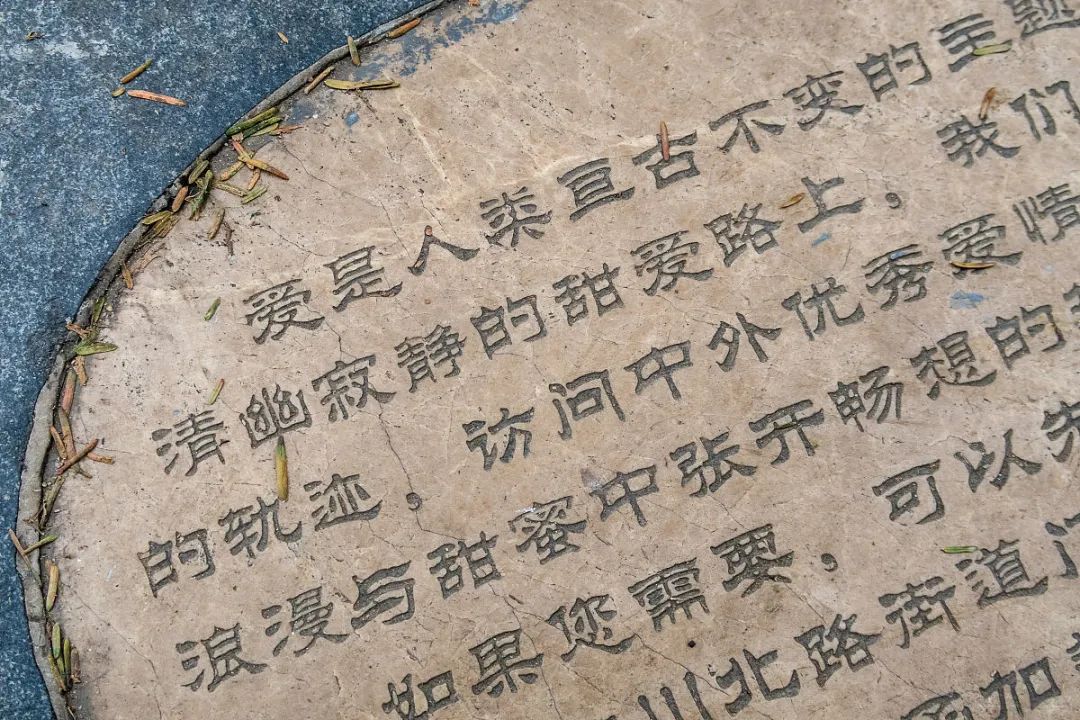 爱是人类亘古不变的主题
清幽寂静的甜爱路上，我们
的轨迹，访问中外优秀爱情
浪漫与甜蜜中张开畅想的
如果您需要，可以先
川北路街道门
加